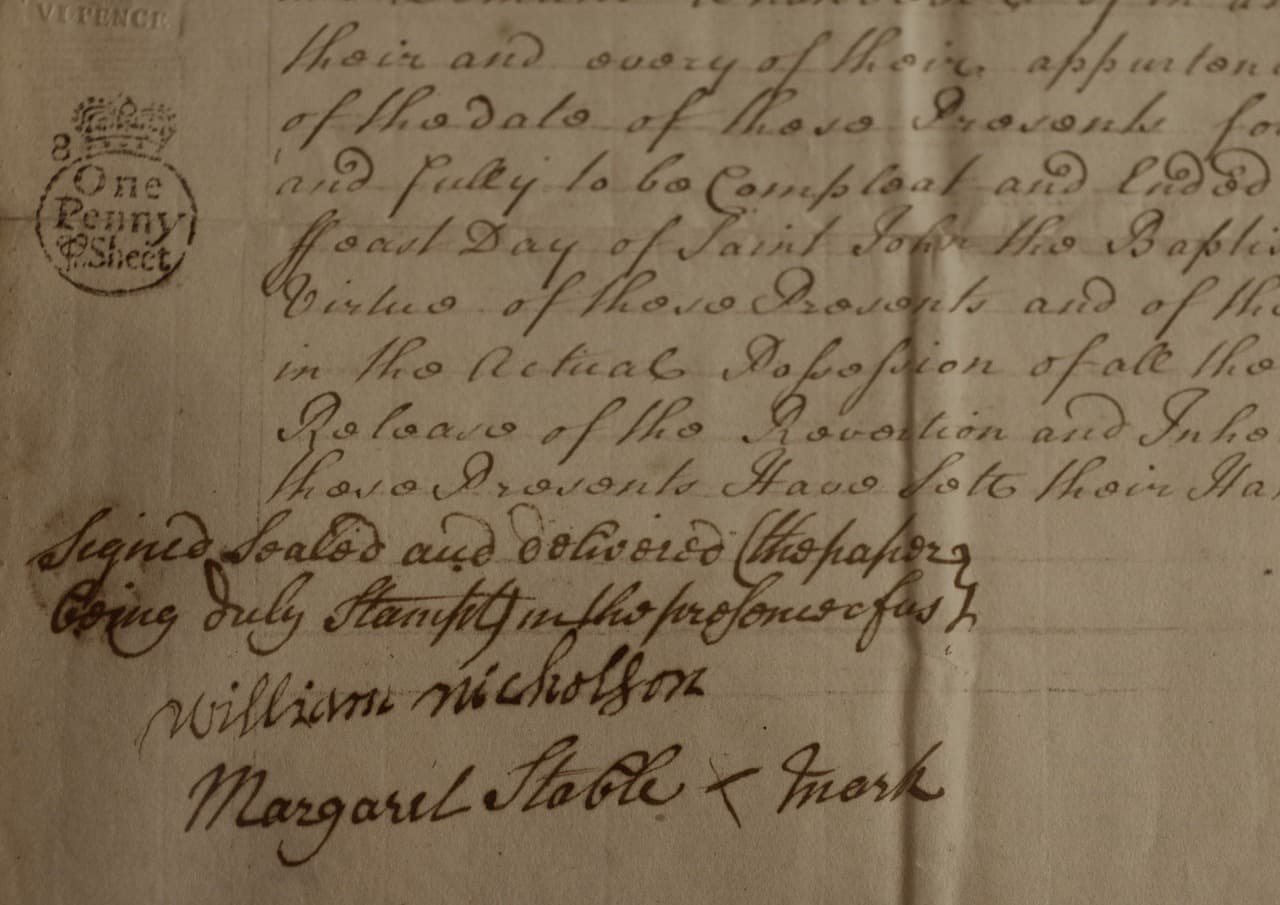 VI PENCE
8
One
Penny
P. Sheet
their and every of their appurten
of the date of these Presents fo
and fully to be Compleat and Ended
ffeast Day of Saint John the Baptis
Virtue of these Presents and of the
in the Actual Poſseſsion of all the
Release of the Revertion and Inhe
these Presents Have Sett their Han
Signed Sealed and delivered (the paper
being duly Stampt) in the preſence of us
William Nicholſon
Margaret Stable × Mark